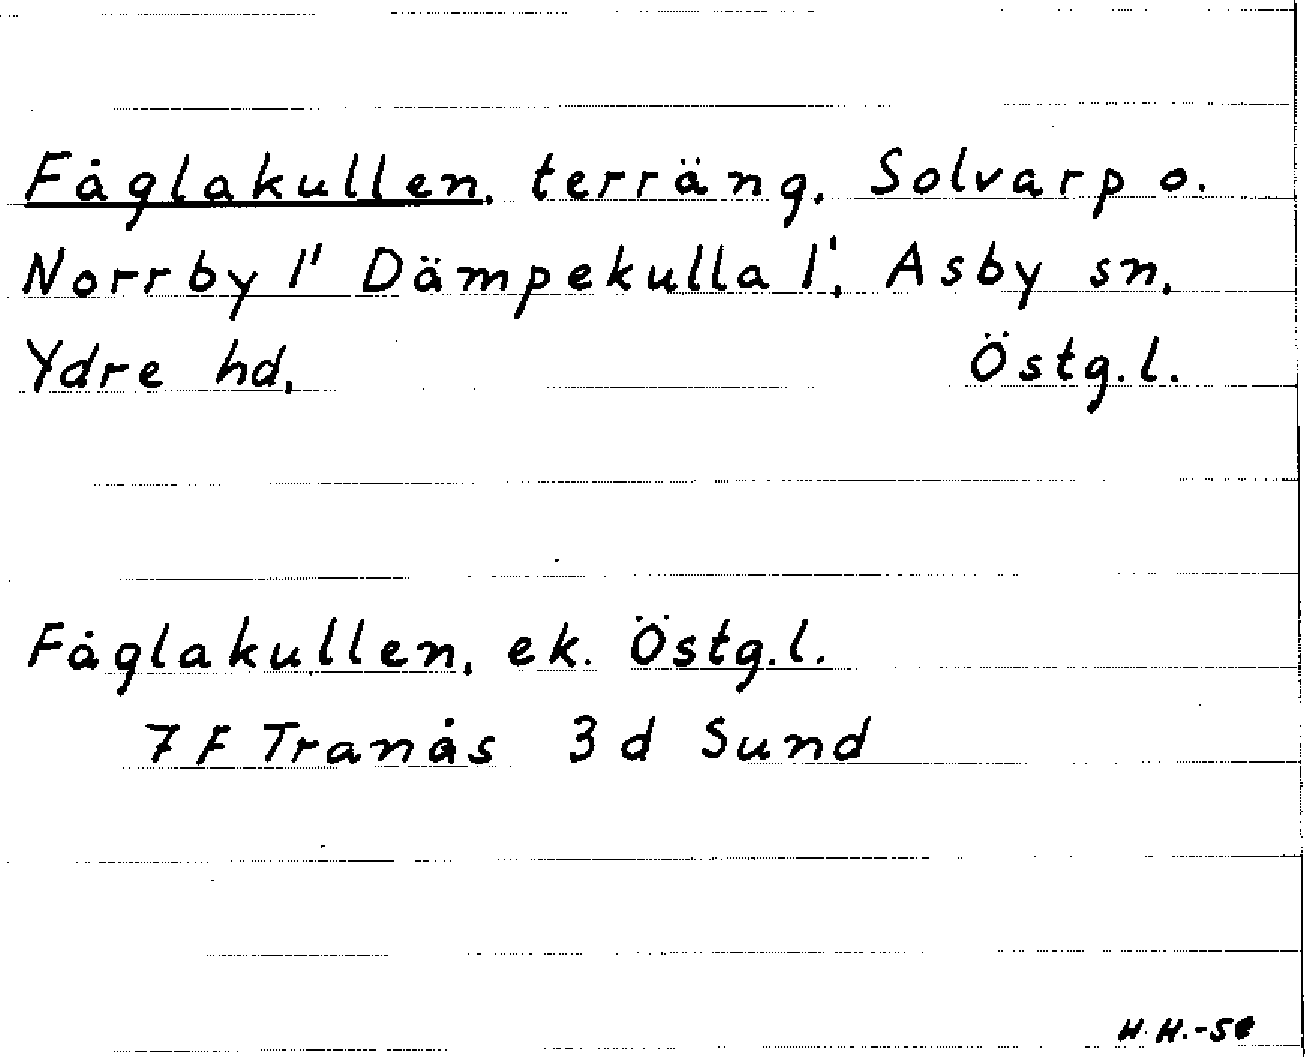 Fåglakullen, terräng, Solvarp o.
Norrby 1' Dämpekulla 1', Asby sn,
Ydre hd, Östg.l.
Fåglakullen, ek. Östg.l.
7 F Tranås 3 d Sund
H.H.-se